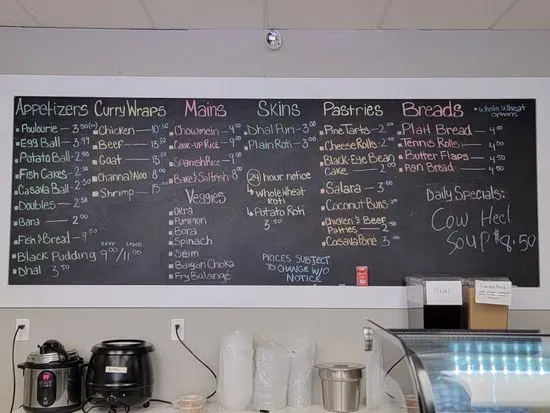 Appetizers
Poulourie — 3.50
Egg Ball — 3.99
Potato Ball — 2.00
Fish Cakes — 2.50
Casava Ball — 2.50
Doubles — 2.50
Bara — 2.00
Fish & Bread — 9.50
Black Pudding 9.00/11.00
Dhal 3.50
Curry Wraps
Chicken — 10.50
Beef — 13.50
Goat — 13.50
Channa/Aloo — 8.00
Shrimp — 15.00
Mains
Chowmein — 9.00
Cook-up Rice — 9.00
Spanish Rice — 9.00
Bake & Saltfish 8.00
Veggies
Okra
Pumpkin
Bora
Spinach
Seim
Baigan Choka
Fry Balangé
Skins
Dhal Puri — 3.00
Plain Roti — 3.00
24 hour notice
Whole Wheat
Roti
Potato Roti
3.50
PRICES SUBJECT
TO CHANGE W/O
NOTICE
Pastries
Pine Tarts — 2.00
Cheese Rolls — 2.00
Black Eye Bean
Cake — 2.00
Salara — 3.00
Coconut Buns
Chicken & Beef
Patties — 2.50
Casava Pone 3.00
Breads
Whole Wheat
Options
Plait Bread — 4.00
Tennis Rolls — 4.00
Butter Flaps — 4.50
Pan Bread — 4.00
Daily Specials:
Cow Heel
Soup $8.50